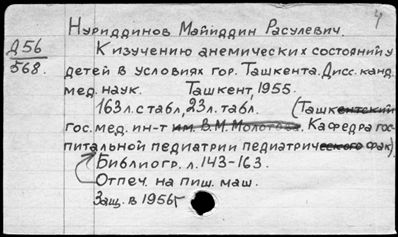 Нуриддинов Майиддин Расулевич. 4
Д56
568.
К изучению анемических состояний у
детей в условиях гор. Ташкента. Дисс. канд.
мед. наук. Ташкент, 1955.
163 л. с табл, 23 л. табл. (Ташкентский
гос. мед. ин-т им. В. М. Молотова. Кафедра гос-
питальной педиатрии педиатрического фак)
Библиогр. л. 143-163.
Отпеч. на пиш. маш.
Защ. в 1956г